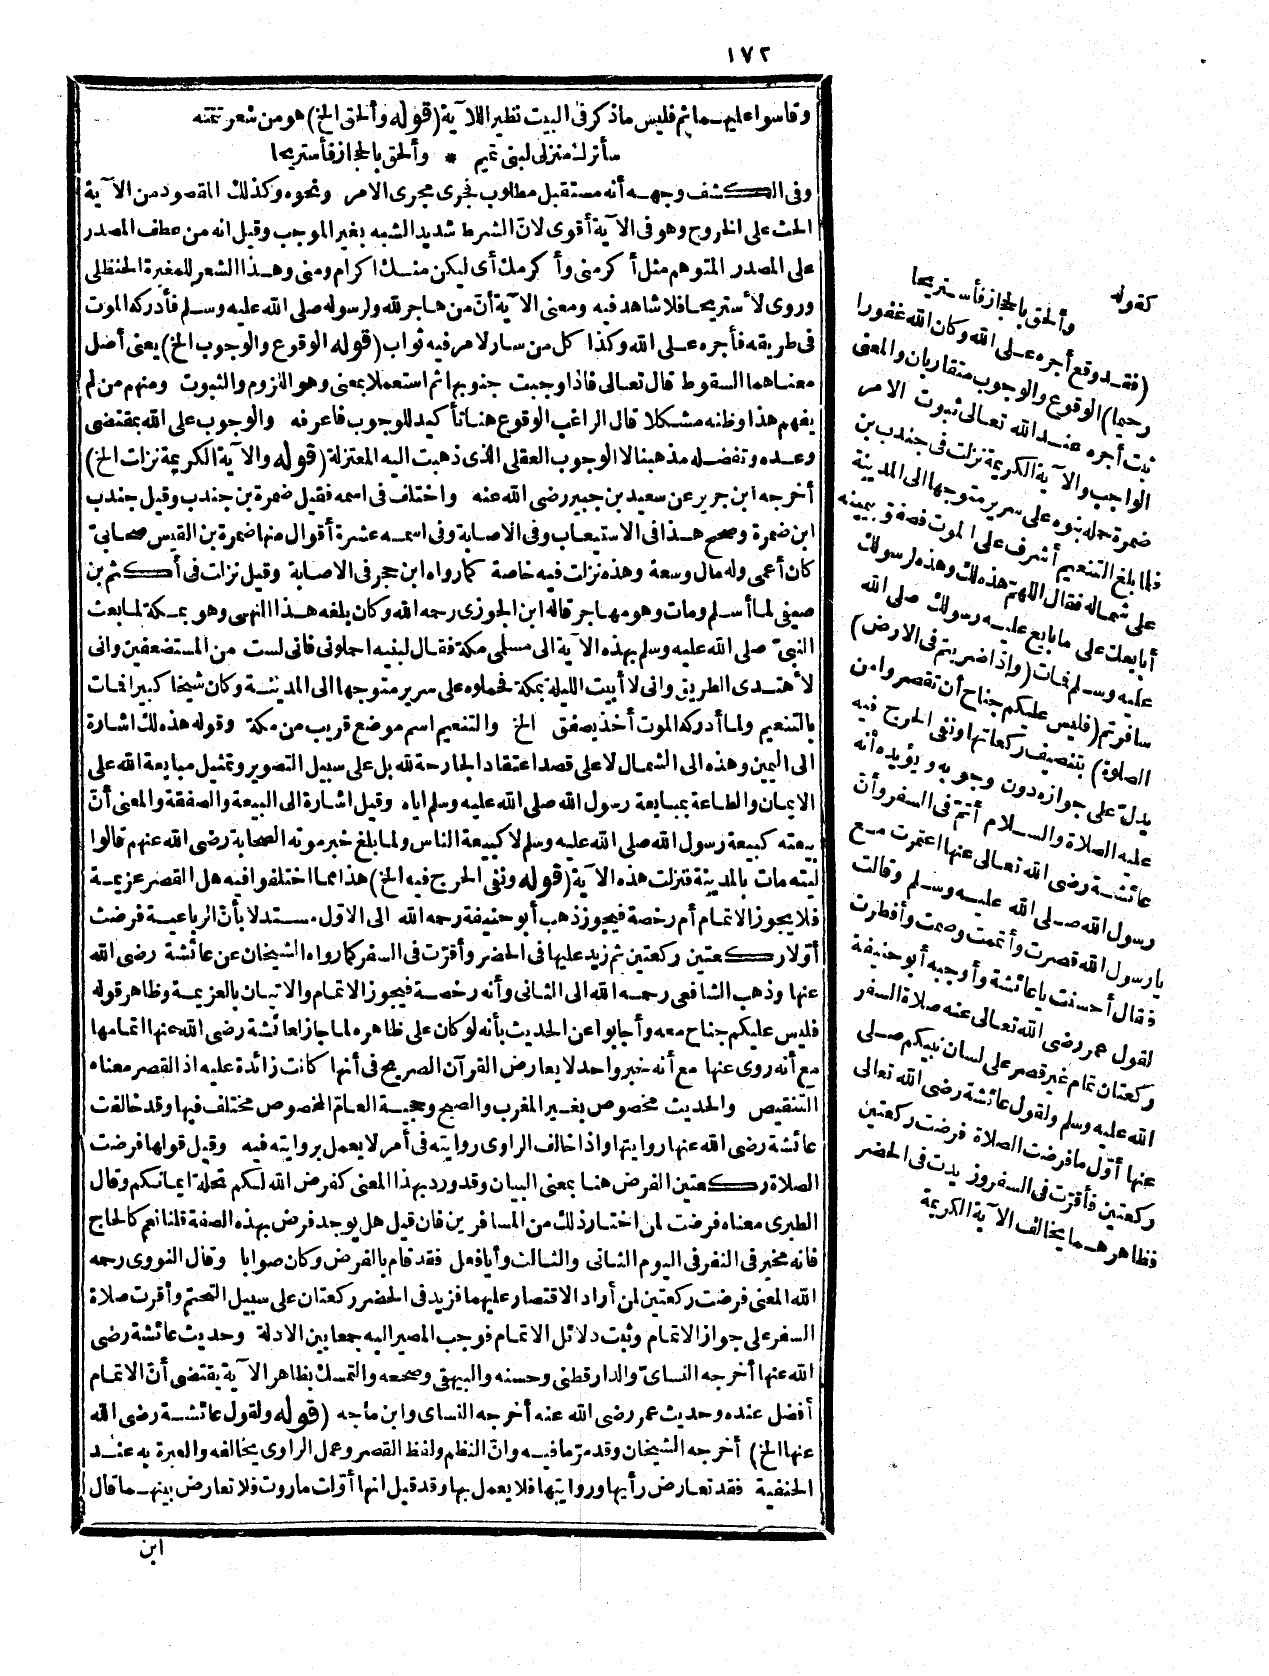 ١٧٢
وقاسوا عليهما ثم فليس ما ذكر في البيت نظير اللآية (قوله وألحق الخ) هو من شعر تتمته
سأترك منزلي لبني تميم * وألحق بالحجاز فأستريحا
وفي الكشف وجهه أنه مستقبل مطلوب فجرى مجرى الامر ونحوه وكذلك المقصود من الآية
الحث على الخروج وهو في الآية أقوى لانّ الشرط شديد الشبه بغير الموجب وقيل انه من عطف المصدر
على المصدر المتوهم مثل أكرمنى وأكرمك أى ليكن منك اكرام ومنى وهذا الشعر للمغيرة الحنظلى
وروى لأستريحا فلا شاهد فيه ومعنى الآية أنّ من هاجر لله ولرسوله صلى الله عليه وسلم فأدركه الموت
في طريقه فأجره على الله وكذا كل من سار لامر فيه ثواب (قوله الوقوع والوجوب الخ) يعنى أصل
معناهما السقوط قال تعالى فاذا وجبت جنوبها ثم استعملا بمعنى وهو اللزوم والثبوت ومنهم من لم
يفهم هذا وظنه مشكلا قال الراغب الوقوع هنا تأكيد للوجوب فاعرفه والوجوب على الله بمقتضى
وعده وتفضله مذهبنا لا الوجوب العقلى الذى ذهبت اليه المعتزلة (قوله والآية الكريمة نزلت الخ)
أخرجه ابن جرير عن سعيد بن جبير رضى الله عنه واختلف في اسمه فقيل ضمرة بن جندب وقيل جندب
ابن ضمرة وصحح هذا في الاستيعاب وفي الاصابة وفي اسمه عشرة أقوال منها ضمرة بن القيس صحابىّ
كان أعمى وله مال وسعة وهذه نزلت فيه خاصة كما رواه ابن حجر في الاصابة وقيل نزلت في أكثم بن
صيفي لما أسلم ومات وهو مهاجر قاله ابن الجوزى رحمه الله وكان بلغه هذا النهى وهو بمكة لما بعث
النبىّ صلى الله عليه وسلم بهذه الآية الى مسلمى مكة فقال لبنيه احملونى فانى لست من المستضعفين وانى
لأهتدى الطريق وانى لا أبيت الليلة بمكة فحملوه على سرير متوجها الى المدينة وكان شيخا كبيرا فمات
بالتنعيم ولما أدركه الموت أخذ يصفق الخ والتنعيم اسم موضع قريب من مكة وقوله هذه لك اشارة
الى اليمين وهذه الى الشمال لا على قصد اعتقاد الجارحة لله بل على سبيل التصوير وتمثيل مبايعة الله على
الايمان والطاعة بمبايعة رسول الله صلى الله عليه وسلم اياه وقيل اشارة الى البيعة والصفقة والمعنى أنّ
بيعته كبيعة رسول الله صلى الله عليه وسلم لا كبيعة الناس ولما بلغ خبر موته الصحابة رضى الله عنهم قالوا
ليته مات بالمدينة فنزلت هذه الآية (قوله ونفي الحرج فيه الخ) هذا مما اختلفوا فيه هل القصر عزيمة
فلا يجوز الاتمام أم رخصة فيجوز ذهب أبو حنيفة رحمه الله الى الاول مستدلا بأنّ الرباعية فرضت
أوّلا ركعتين ركعتين ثم زيد عليها في الحضر وأقرّت في السفر كما رواه الشيخان عن عائشة رضى الله
عنها وذهب الشافعى رحمه الله الى الثانى وأنه رخصة فيجوز الاتمام والاتيان بالعزيمة وظاهر قوله
فليس عليكم جناح معه وأجابوا عن الحديث بأنه لو كان على ظاهره لما جاز لعائشة رضى الله عنها اتمامها
مع أنه روى عنها مع أنه خبر واحد لا يعارض القرآن الصريح في أنها كانت زائدة عليه اذ القصر معناه
التنقيص والحديث مخصوص بغير المغرب والصبح وحجية العامّ المخصوص مختلف فيها وقد خالفت
عائشة رضى الله عنها روايتها واذا خالف الراوى روايته في أمر لا يعمل بروايته فيه وقيل قولها فرضت
الصلاة ركعتين الفرض هنا بمعنى البيان وقد ورد بهذا المعنى كفرض الله لكم تحلة ايمانكم وقال
الطبرى معناه فرضت لمن اختار ذلك من المسافرين فان قيل هل يوجد فرض بهذه الصفة قلنا نعم كالحاج
فانه مخير في النفر في اليوم الثانى والثالث وأيا فعل فقد قام بالفرض وكان صوابا وقال النووى رحمه
الله المعنى فرضت ركعتين لمن أراد الاقتصار عليهما فزيد في الحضر ركعتان على سبيل التحتم وأقرت صلاة
السفر على جواز الاتمام وثبت دلائل الاتمام فوجب المصير اليه جمعا بين الادلة وحديث عائشة رضى
الله عنها أخرجه النساىّ والدارقطنى وحسنه والبيهقى وصححه والتمسك بظاهر الآية يقتضى أنّ الاتمام
أفضل عنده وحديث عمر رضى الله عنه أخرجه النساى وابن ماجه (قوله ولقول عائشة رضى الله
عنها الخ) أخرجه الشيخان وقد مرّ ما فيه وانّ النظم ولفظ القصر وعمل الراوى يخالفه والعبرة به عند
الحنفية فقد تعارض رأيها وروايتها فلا يعمل بها وقد قيل انها أوّلت ما روت فلا تعارض بينهما قال
ابن
كقوله
وألحق بالحجاز فأستريحا
(فقد وقع أجره على الله وكان الله غفورا
رحيما) الوقوع والوجوب متقاربان والمعنى
ثبت أجره عند الله تعالى ثبوت الامر
الواجب والآية الكريمة نزلت في جندب بن
ضمرة حمله بنوه على سرير متوجها الى المدينة
فلما بلغ التنعيم أشرف على الموت فصفق بيمينه
على شماله فقال اللهمّ هذه لك وهذه لرسولك
أبايعك على ما بايع عليه رسولك صلى الله
عليه وسلم فمات (واذا ضربتم في الارض)
سافرتم (فليس عليكم جناح أن تقصروا من
الصلوة) بتنصيف ركعاتها ونفي الحرج فيه
يدلّ على جوازه دون وجوبه ويؤيده أنه
عليه الصلاة والسلام أتمّ في السفر وأنّ
عائشة رضى الله تعالى عنها اعتمرت مع
رسول الله صلى الله عليه وسلم وقالت
يا رسول الله قصرت وأتممت وصمت وأفطرت
فقال أحسنت يا عائشة وأوجبه أبو حنيفة
لقول عمر رضى الله تعالى عنه صلاة السفر
ركعتان تمام غير قصر على لسان نبيكم صلى
الله عليه وسلم ولقول عائشة رضى الله تعالى
عنها أوّل ما فرضت الصلاة فرضت ركعتين
ركعتين فأقرّت في السفر وزيدت في الحضر
فظاهرهما يخالف الآية الكريمة